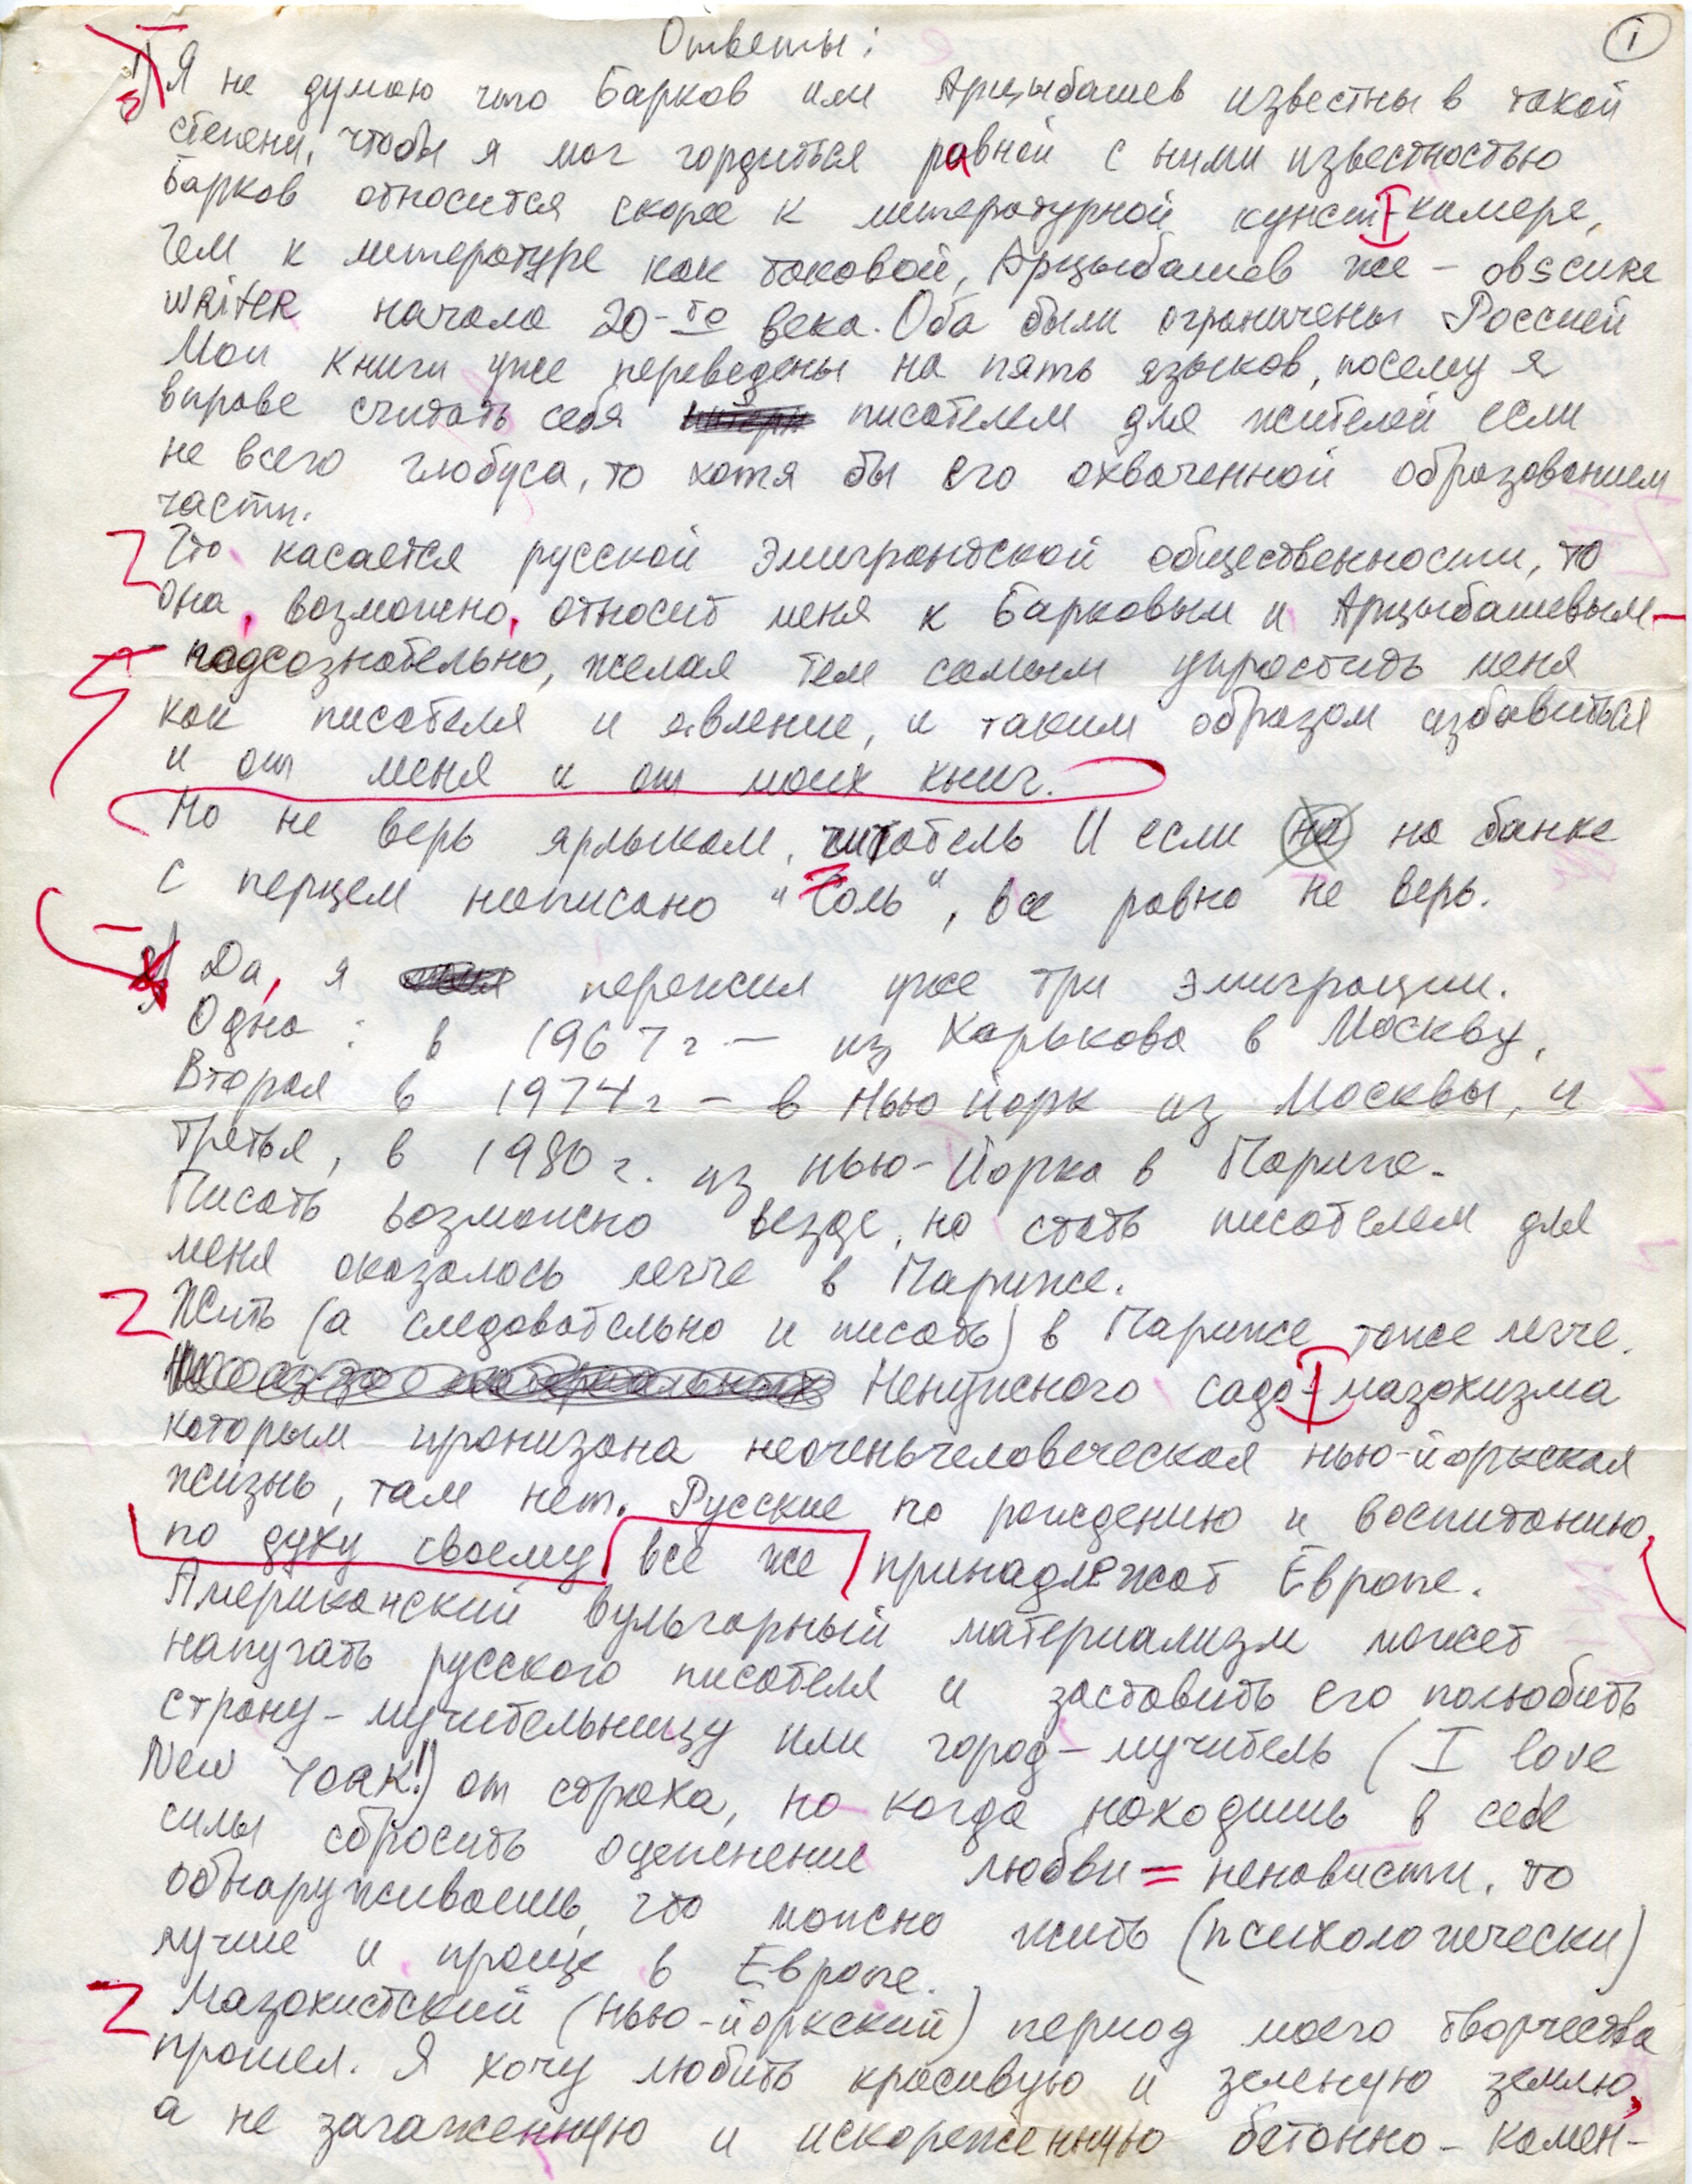 Ответы:
1
1) Я не думаю что Барков или Арцыбашев известны в такой
степени, чтобы я мог гордиться равной с ними известностью
Барков относится скорее к литературной кунст-камере,
чем к литературе как таковой, Арцыбашев же – obscure
writer начала 20-го века. Оба были ограничены Россией
Мои книги уже переведены на пять языков, посему я
вправе считать себя писателем для жителей если
не всего глобуса, то хотя бы его охваченной образованием
части.
Что касается русской эмигрантской общественности, то
она, возможно, относит меня к Барковым и Арцыбашевым –
подсознательно, желая тем самым упростить меня
как писателя и явление, и таким образом избавиться
и от меня и от моих книг.
Но не верь ярлыкам, читатель И если на на банке
с перцем написано "Соль", все равно не верь.
2) Да, я пережил уже три эмиграции.
Одна: в 1967 г – из Харькова в Москву,
Вторая в 1974 г – в Нью Йорк из Москвы, и
Третья, в 1980 г. из Нью-Йорка в Париж.
Писать возможно везде, но стать писателем для
меня оказалось легче в Париже.
Жить (а следовательно и писать) в Париже тоже легче.
Ненужного садо-мазохизма
которым пронизана неоченьчеловеческая нью-йоркская
жизнь, там нет. Русские по рождению и воспитанию,
по духу своему все же принадлежат Европе.
Американский вульгарный материализм может
напугать русского писателя и заставить его полюбить
страну-мучительницу или город-мучитель (I love
New York!) от страха, но когда находишь в себе
силы сбросить оцепенение любви = ненависти, то
обнаруживаешь, что можно жить (психологически)
лучше и проще в Европе.
Мазохистский (нью-йоркский) период моего творчества
прошел. Я хочу любить красивую и зеленую землю,
а не загаженную и искореженную бетонно-камен-